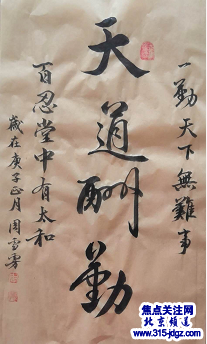 一勤天下無難事
天道酬勤
百忍堂中有太和
歲在庚子正月周雪雲
焦点关注网
北京频道
www.315-jdgz.com